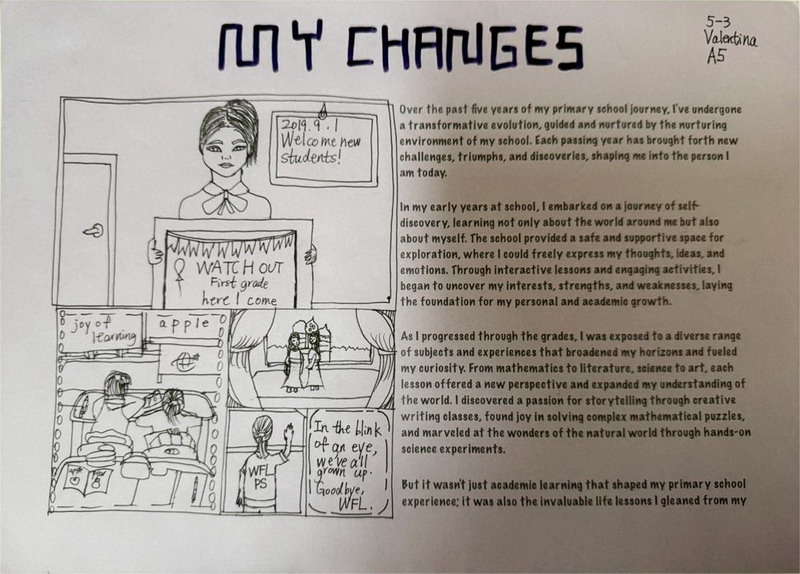 MY CHANGES
5-3
Valentina
A5
2019.9.1
Welcome new
students!
WATCH OUT
First grade
here I come
joy of
learning
apple
WFL
PS
In the blink
of an eye,
we've all
grown up.
Goodbye,
WFL.
Over the past five years of my primary school journey, I've undergone
a transformative evolution, guided and nurtured by the nurturing
environment of my school. Each passing year has brought forth new
challenges, triumphs, and discoveries, shaping me into the person I
am today.
In my early years at school, I embarked on a journey of self-
discovery, learning not only about the world around me but also
about myself. The school provided a safe and supportive space for
exploration, where I could freely express my thoughts, ideas, and
emotions. Through interactive lessons and engaging activities, I
began to uncover my interests, strengths, and weaknesses, laying
the foundation for my personal and academic growth.
As I progressed through the grades, I was exposed to a diverse range
of subjects and experiences that broadened my horizons and fueled
my curiosity. From mathematics to literature, science to art, each
lesson offered a new perspective and expanded my understanding of
the world. I discovered a passion for storytelling through creative
writing classes, found joy in solving complex mathematical puzzles,
and marveled at the wonders of the natural world through hands-on
science experiments.
But it wasn't just academic learning that shaped my primary school
experience; it was also the invaluable life lessons I gleaned from my